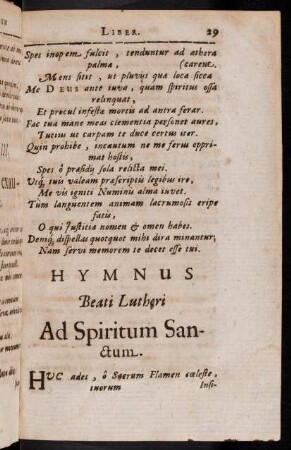 LIBER. 29
Spes inopem fulcit, tenduntur ad athera
palma, (carent.
Mens sitit, ut pluvijs qua loca sicca
Me DEUS ante iuva, quam spiritus ossa
relinquat,
Et procul infesta mortis ad antra ferar.
Fac tua mane meas clementia personet aures,
Tutius ut carpam te duce certus iter.
Quin prohibe, incautum ne me ferus opprimat
hostis,
Spes ô præsidij sola relicta mei.
Utq; tuis valeam præscriptis legibus ire,
Me vis igniti Numinis alma iuvet.
Tum languentem animam lacrumosis eripe
fatis,
O qui Justitia nomen & omen habes.
Deniq; dispellas quotquot mihi dira minantur,
Nam servi memorem te decet esse tui.
HYMNUS
Beati Lutheri
Ad Spiritum San-
ctum.
HUC ades, ô Sacrum Flamen cœleste,
tuorum Insi-